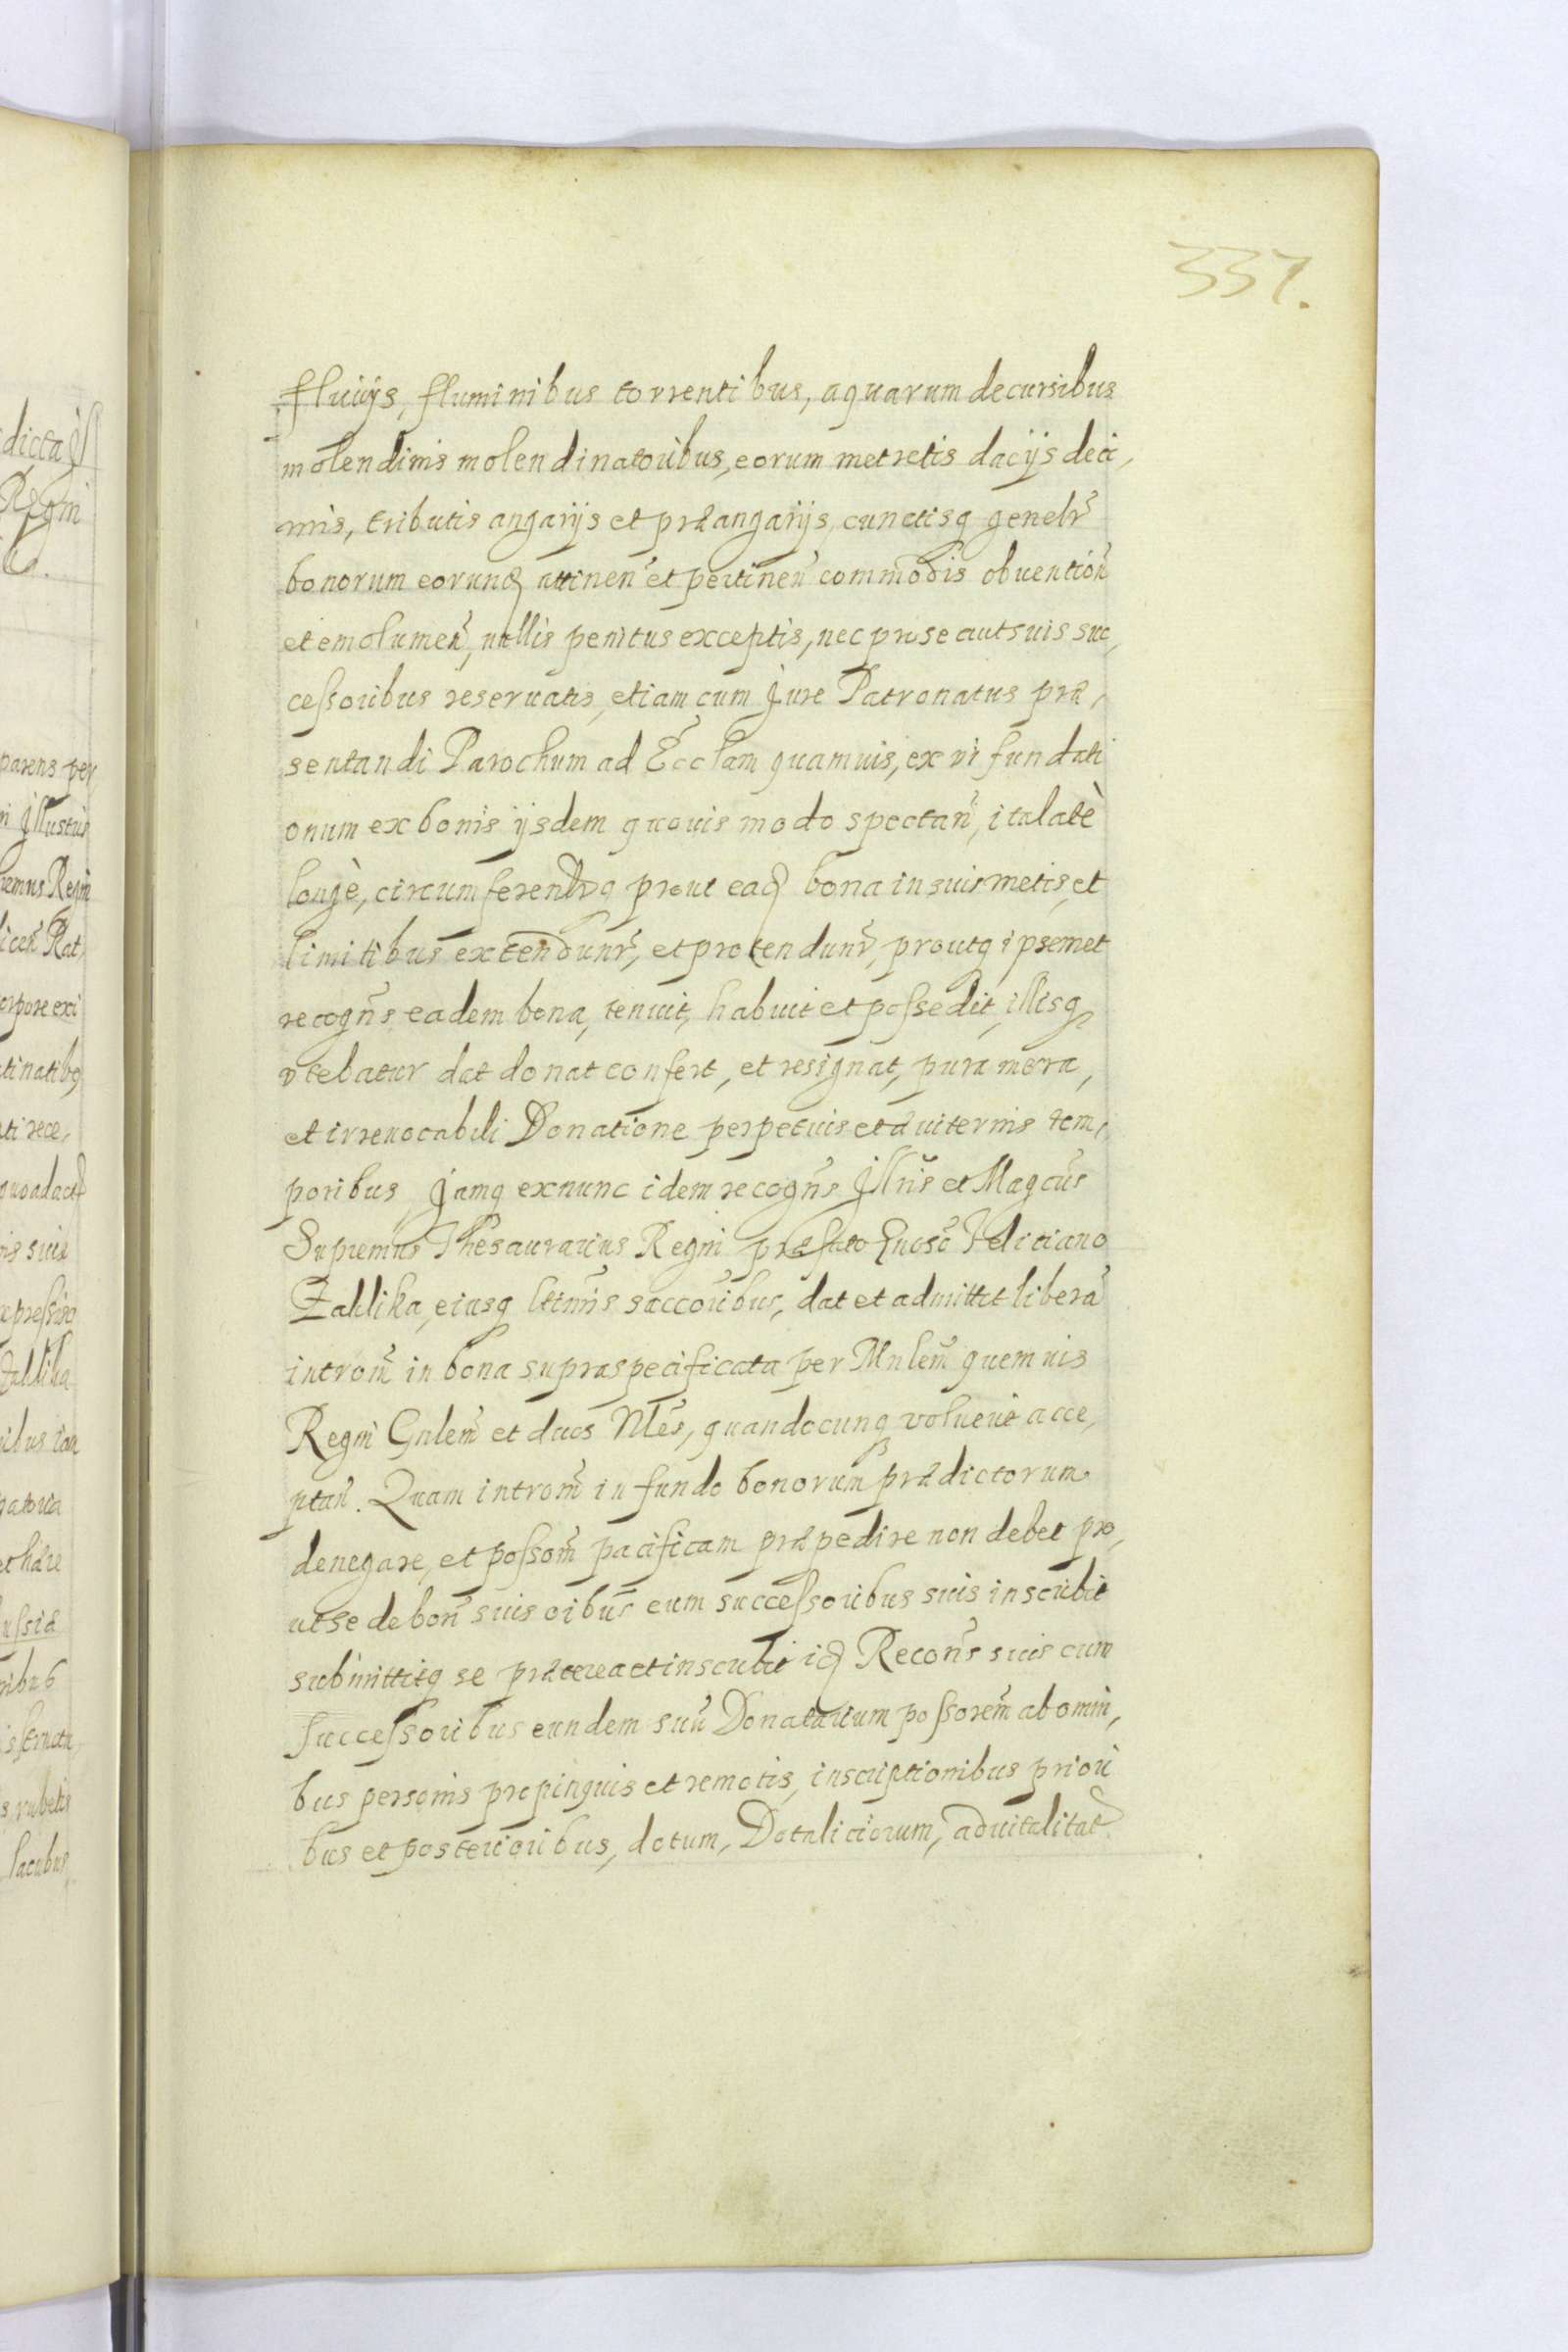 337.
fluuijs, fluminibus torrentibus, aquarum decursibus
molendinis molendinatoribus, eorum metretis dacijs deci,
mis, tributis angarijs et præangarijs, cunctisq genelr̃
bonorum eorunđ attinen̄ et pertinen̄ commodis obuention̄
et emolumen̄, nullis penitus exceptis, nec pro se aut suis suc,
cessoribus reseruatis, etiam cum Jure Patronatus præ,
sentandi Parochum ad Eccl̃am quamuis, ex vi fundati
onum ex bonis ijsdem quouis modo spectan̄, ita latè
longè, circumferen
prout eađ bona in suis metis, et
limitibus extendunr̃, et protendunr̃, proutq ipsemet
recogñs eadem bona, tenuit, habuit et possedit, illisq
vtebatur dat donat confert, et resignat, pura mera,
et irreuocabili Donatione perpetuis et æuiternis tem,
poribus, Jamq exnunc idem recogñs Jllr̃is et Magcũs
Supremus Thesaurarius Regni præfato Gnoso Felitiano
Zaklika, eiusq lttimis̃ saccoribus̃, dat et admittit liberã
introm̃ in bona supraspecificata per Mnlem̃ quemuis
Regni Gnlem̃ et duos Nlẽs, quandocunq voluerit acce,
ptan̄. Quam introm̃ in fundo bonorum prædictorum
denegare, et possom̃ pacificam præpedire non debet pro,
ut se de bon̄ suis oibus̃ cum successoribus suis inscribit
submittitq se præterea et inscribit iđ Recon̄s suis cum
Successoribus eundem suũ Donatarium possorem̃ ab omni,
bus personis propinquis et remotis, inscriptionibus priori
bus et posterioribus, dotum, Dotaliciorum, aduitalitat̃
dicta
Regni
parens per
Jllustris
Regni
licen̄ Rat,
corpore exi
ti rece,
is suis
Zaklika
gatoria
s rubetis
lacubus